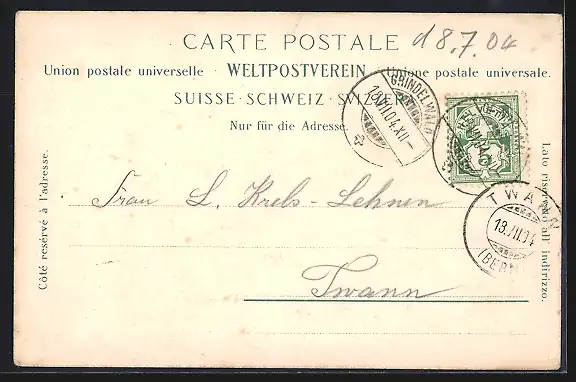 CARTE POSTALE d 8.7.04
Union postale universelle · WELTPOSTVEREIN · Unione postale universale.
SUISSE · SCHWEIZ · SVIZZERA
Nur für die Adresse.
GRINDELWALD
18.VII.04.XII-
TWANN
(BERN)
Frau L. Krebs-Lehnen
Twann
Côté reservé à l'adresse.
Lato riservato all' indirizzo.